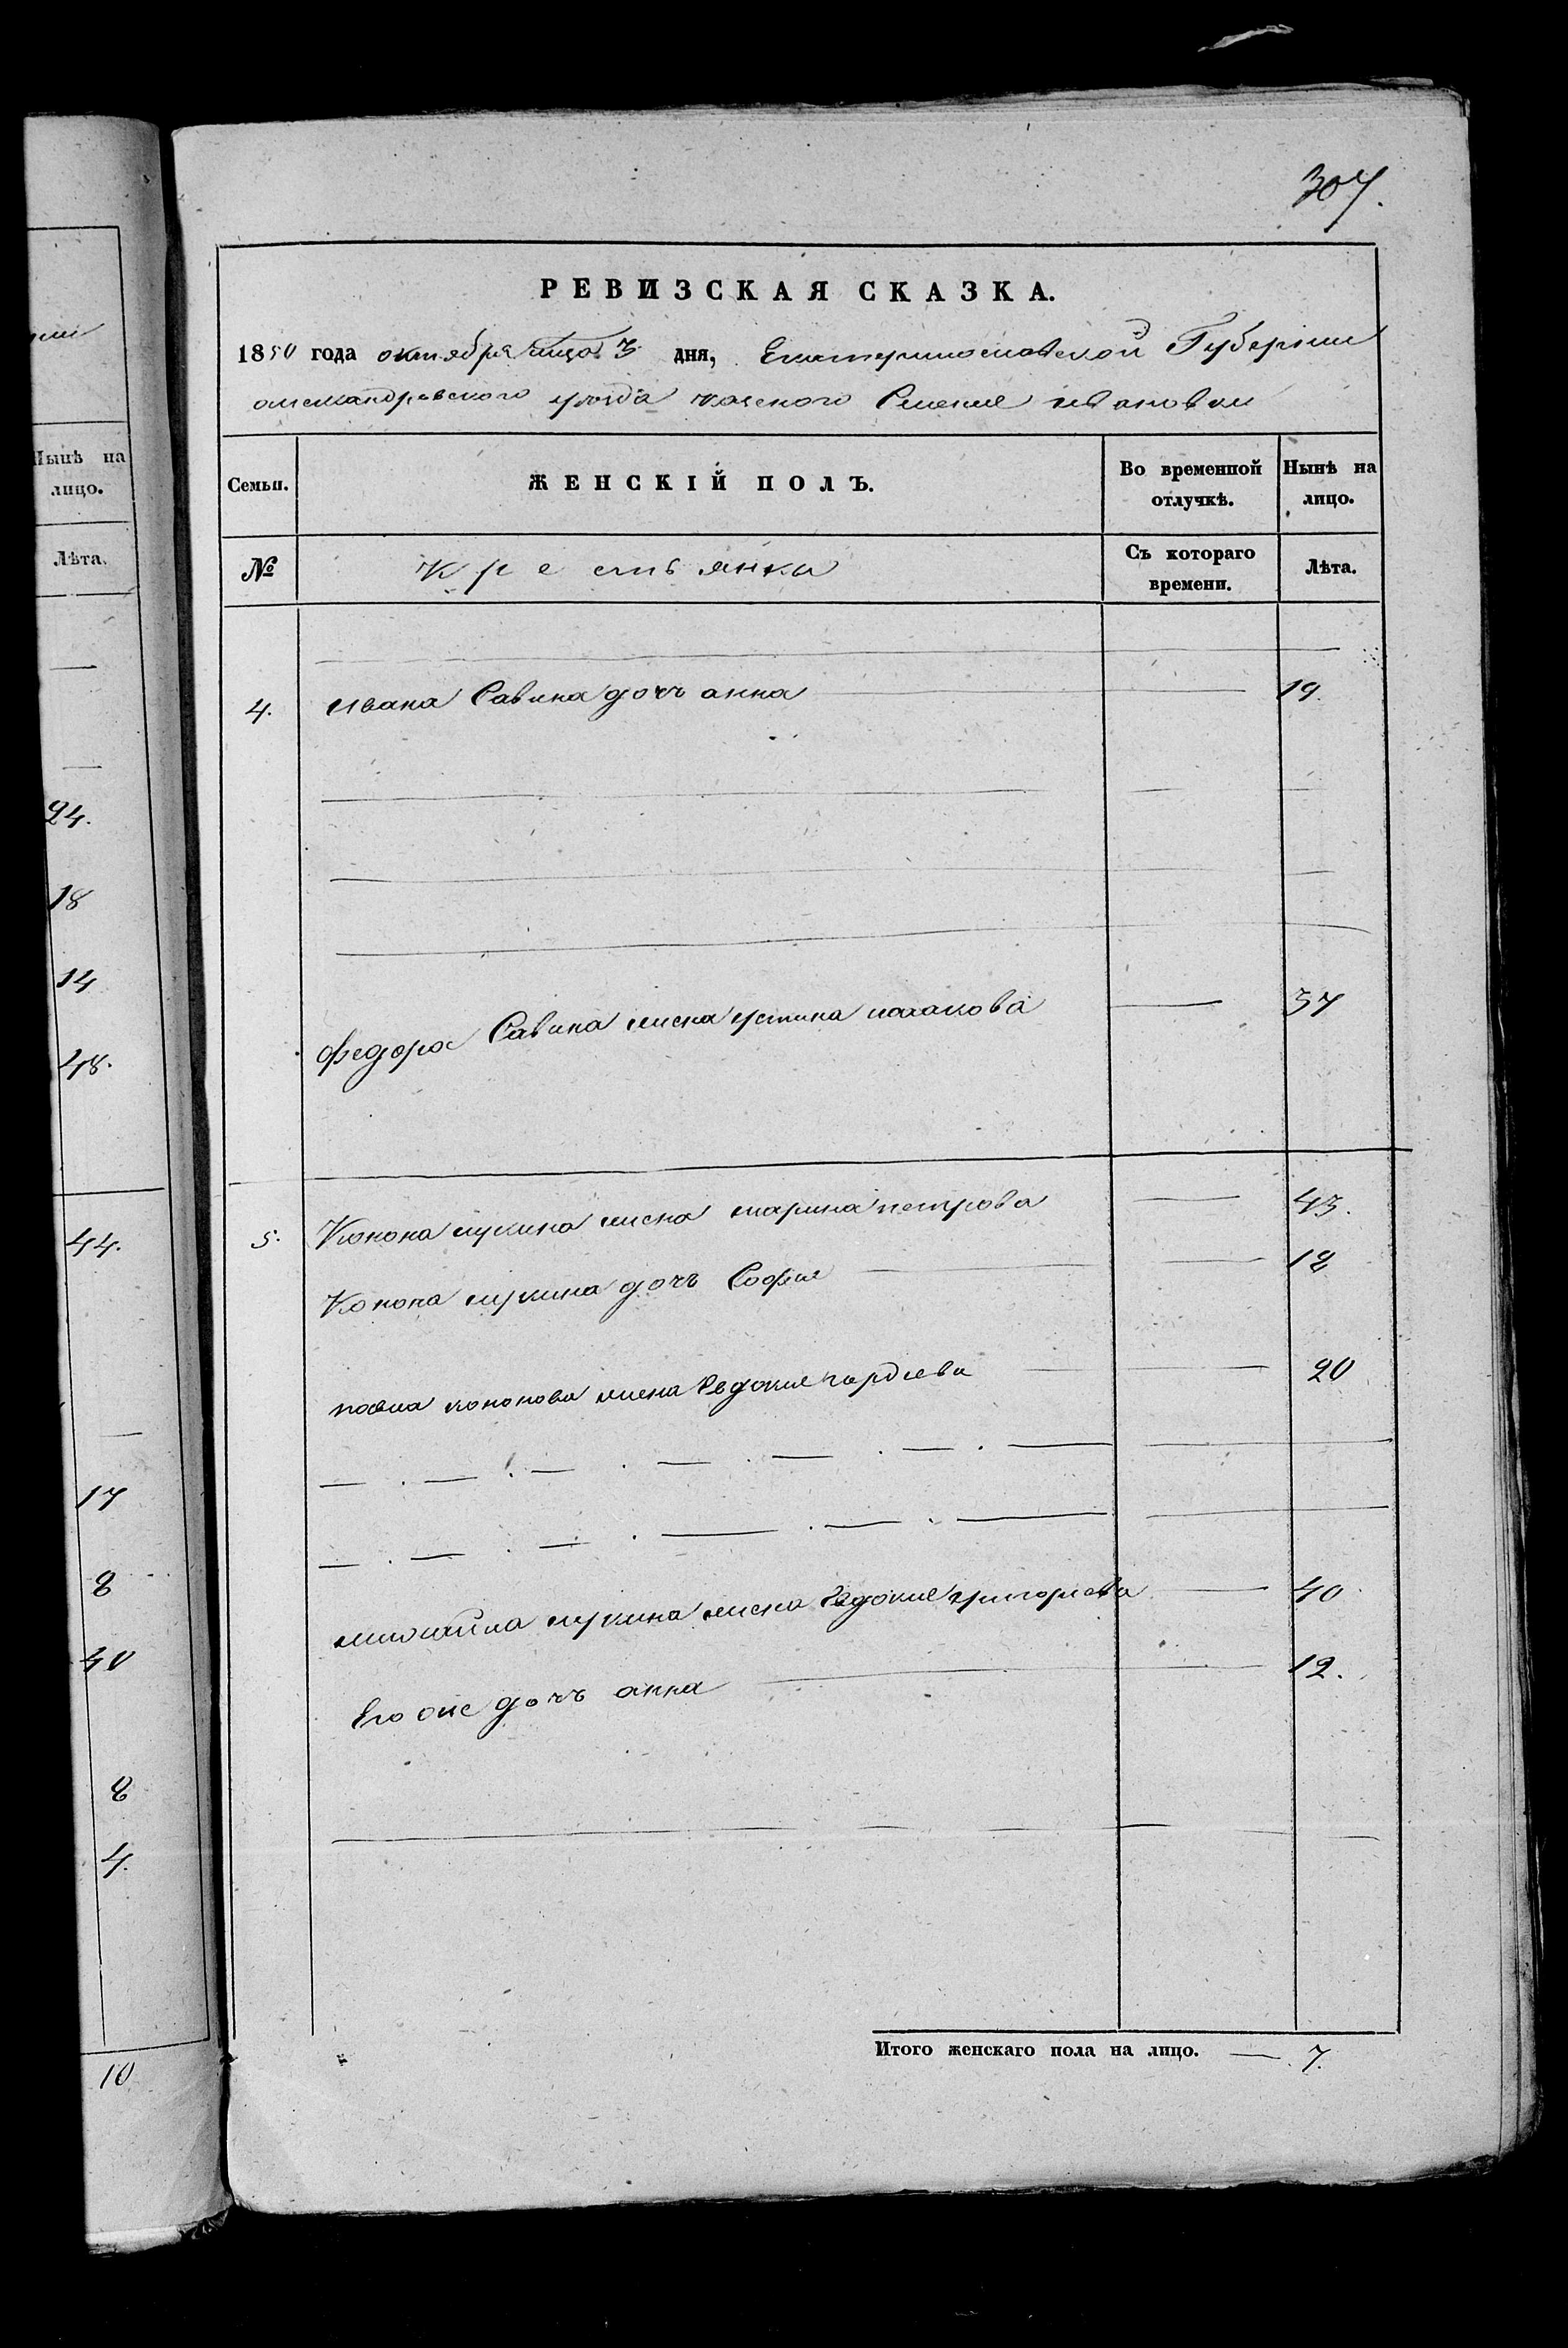 307.
РЕВИЗСКАЯ СКАЗКА.
1850 года октября месяца 3 дня, Екатеринославской Губернии
александровского уезда имения ивановки
Семьи. ЖЕНСКІЙ ПОЛЪ. Во временной отлучкѣ. Нынѣ на лицо.
№ Крестьянки Съ котораго времени. Лѣта.
4. Ивана Савина дочъ анна 19.
федора Савина жена устина 37
5. Конона лукина жена марина петрова 43.
Конона лукина дочъ София 12
павла кононова жена Евдокия гордеева 20
михайла лукина жена Евдокия григорьева 40
Его же дочъ анна 12.
Итого женскаго пола на лицо. — 7.
Нынѣ на
лицо.
Лѣта.
24.
18
14
48.
44.
17
8
40
8
4.
10